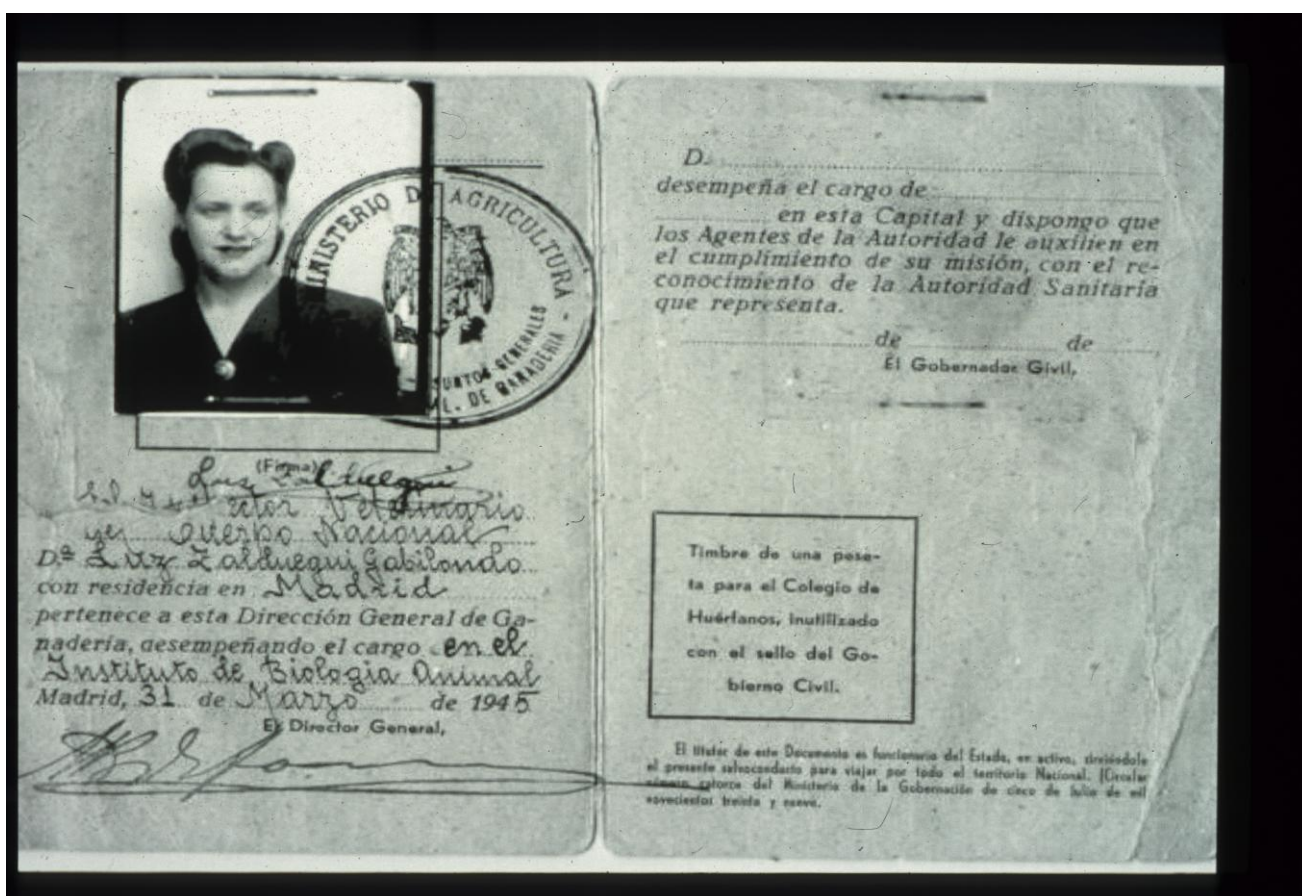 MINISTERIO DE AGRICULTURA -
ASUNTOS GENERALES
DE GANADERIA
(Firma)
Luz Zalduegui
El Inspector Veterinario
del Cuerpo Nacional
D.ª Luz Zalduegui Gabilondo
con residencia en Madrid
pertenece a esta Dirección General de Ga-
nadería, desempeñando el cargo en el
Instituto de Biologia Animal
Madrid, 31 de Marzo de 1945
El Director General,
D.
desempeña el cargo de
en esta Capital y dispongo que
los Agentes de la Autoridad le auxilien en
el cumplimiento de su misión, con el re-
conocimiento de la Autoridad Sanitaria
que representa.
de de
El Gobernador Civil,
Timbre de una pese-
ta para el Colegio de
Huérfanos, inutilizado
con el sello del Go-
bierno Civil.
El titular de este Documento es funcionario del Estado, en activo, sirviéndole
el presente salvoconducto para viajar por todo el territorio Nacional. (Circular
número catorce del Ministerio de la Gobernación de cinco de Julio de mil
novecientos treinta y nueve.